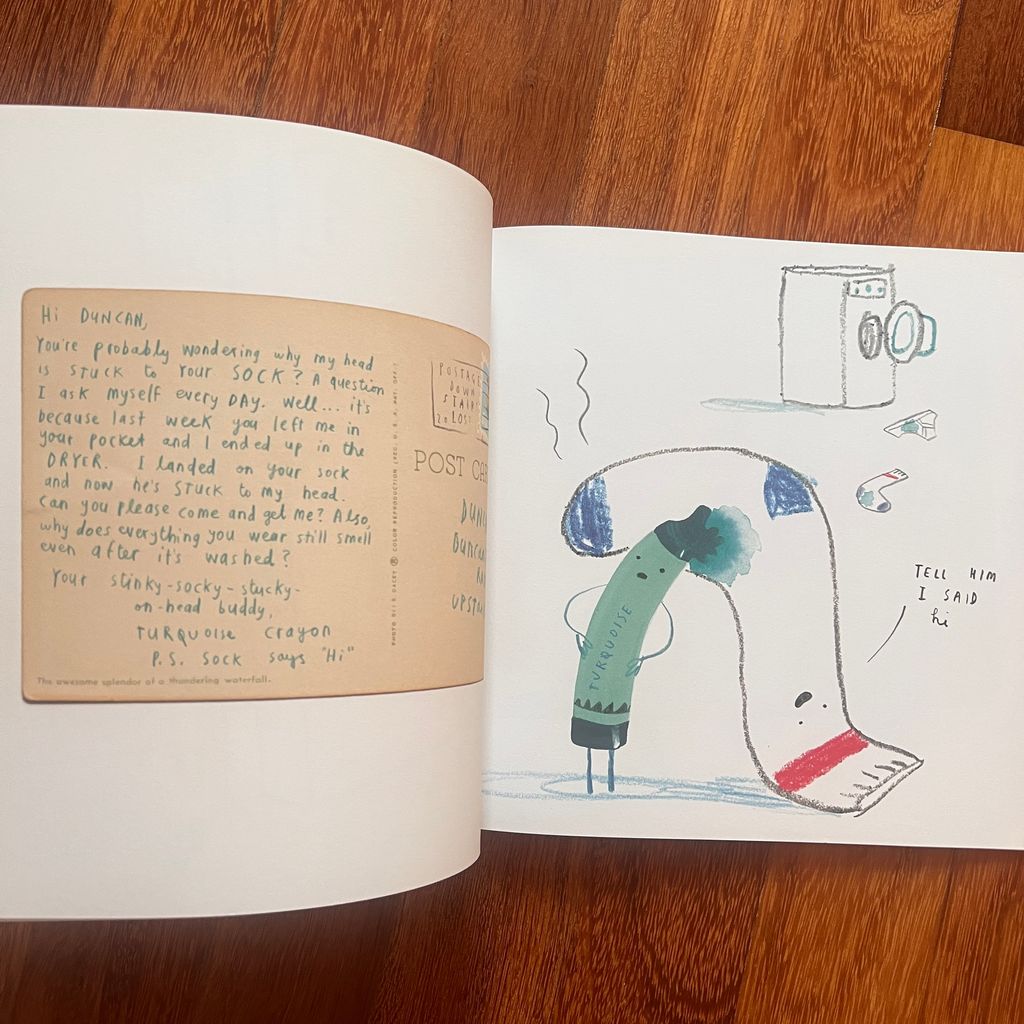 Hi DUNCAN,
You're probably wondering why my head
is STUCK to Your SOCK? A question
I ask myself every DAY. Well... it's
because last week you left me in
your pocket and I ended up in the
DRYER. I landed on your sock
and now he's STUCK to my head.
Can you please come and get me? Also,
why does everything you wear still smell
even after it's washed?
Your stinky-socky-stucky-
on-head buddy,
TURQUOISE Crayon
P.S. SOCK says "Hi"
The awesome splendor of a thundering waterfall.
POSTAGE
DOWN
STAIR
LOST
POST
TURQUOISE
TELL HIM
I SAID
hi